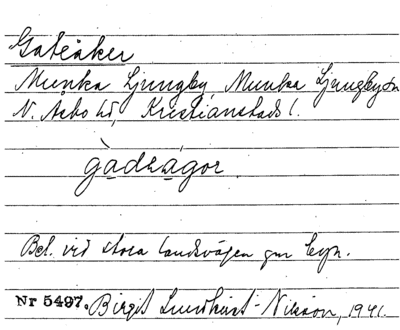 Gateåker
Munka Ljungby, Munka Ljungby sn
N. Åsbo hd, Kristianstads l.
gàdeágor
Bel. vid stora landsvägen gm byn.
Nr 5497. Birgit Lundkvist-Nilsson, 1941.